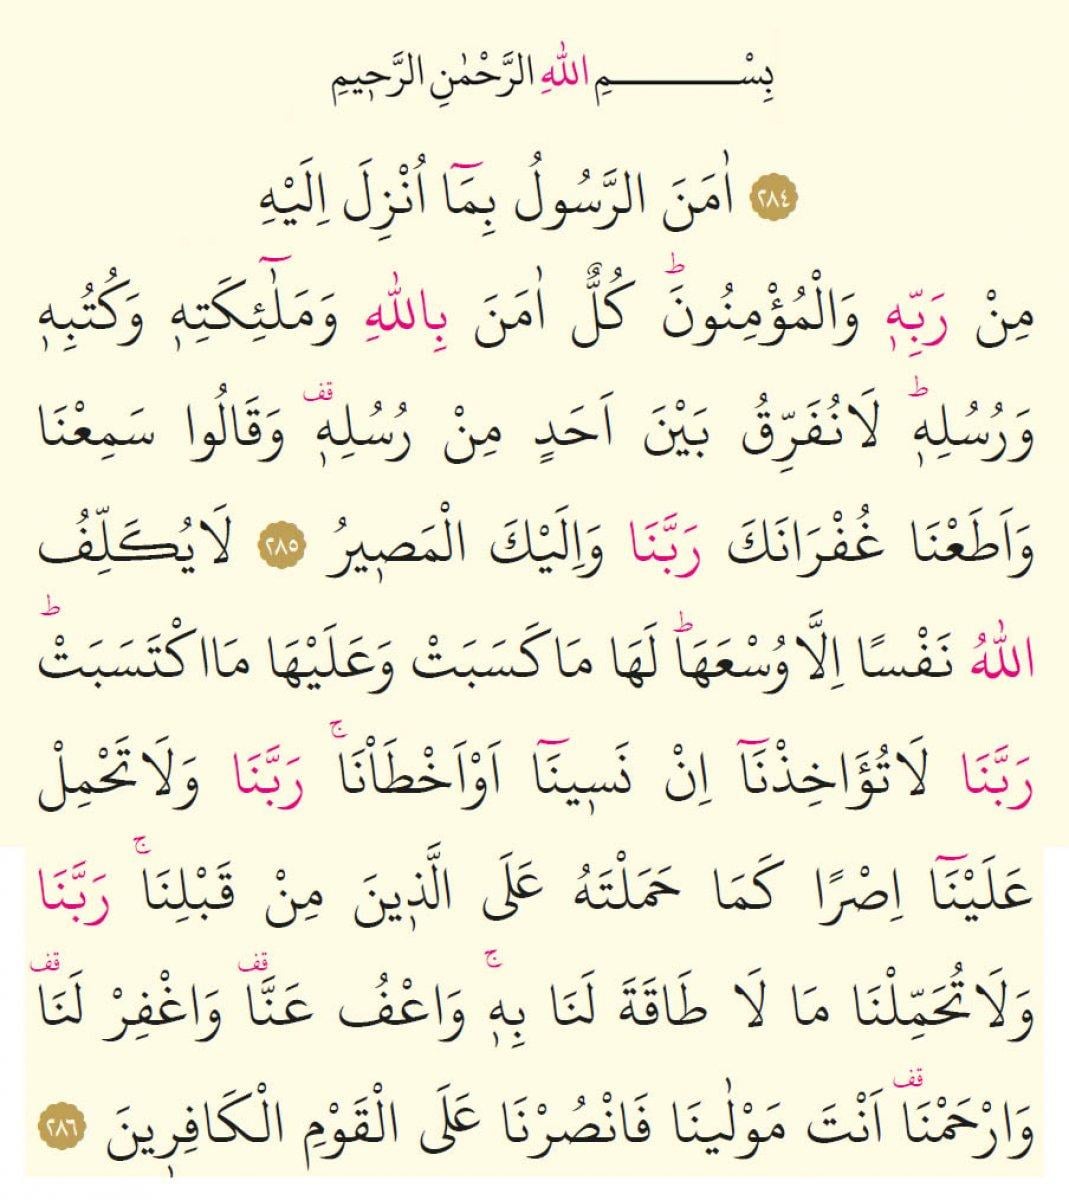 بِسْمِ اللّٰهِ الرَّحْمٰنِ الرَّحٖيمِ
٢٨٤ اٰمَنَ الرَّسُولُ بِمَٓا اُنْزِلَ اِلَيْهِ
مِنْ رَبِّهٖ وَالْمُؤْمِنُونَؕ كُلٌّ اٰمَنَ بِاللّٰهِ وَمَلٰٓئِكَتِهٖ وَكُتُبِهٖ
وَرُسُلِهٖؕ لَا نُفَرِّقُ بَيْنَ اَحَدٍ مِنْ رُسُلِهٖ قف وَقَالُوا سَمِعْنَا
وَاَطَعْنَا غُفْرَانَكَ رَبَّنَا وَاِلَيْكَ الْمَصٖيرُ ٢٨٥ لَا يُكَلِّفُ
اللّٰهُ نَفْسًا اِلَّا وُسْعَهَاؕ لَهَا مَا كَسَبَتْ وَعَلَيْهَا مَا اكْتَسَبَتْؕ
رَبَّنَا لَا تُؤَاخِذْنَٓا اِنْ نَسٖينَٓا اَوْ اَخْطَاْنَاۚ رَبَّنَا وَلَا تَحْمِلْ
عَلَيْنَٓا اِصْرًا كَمَا حَمَلْتَهُ عَلَى الَّذٖينَ مِنْ قَبْلِنَاۚ رَبَّنَا
وَلَا تُحَمِّلْنَا مَا لَا طَاقَةَ لَنَا بِهٖۚ وَاعْفُ عَنَّا قف وَاغْفِرْ لَنَا قف
وَارْحَمْنَا قف اَنْتَ مَوْلٰينَا فَانْصُرْنَا عَلَى الْقَوْمِ الْكَافِرٖينَ ٢٨٦